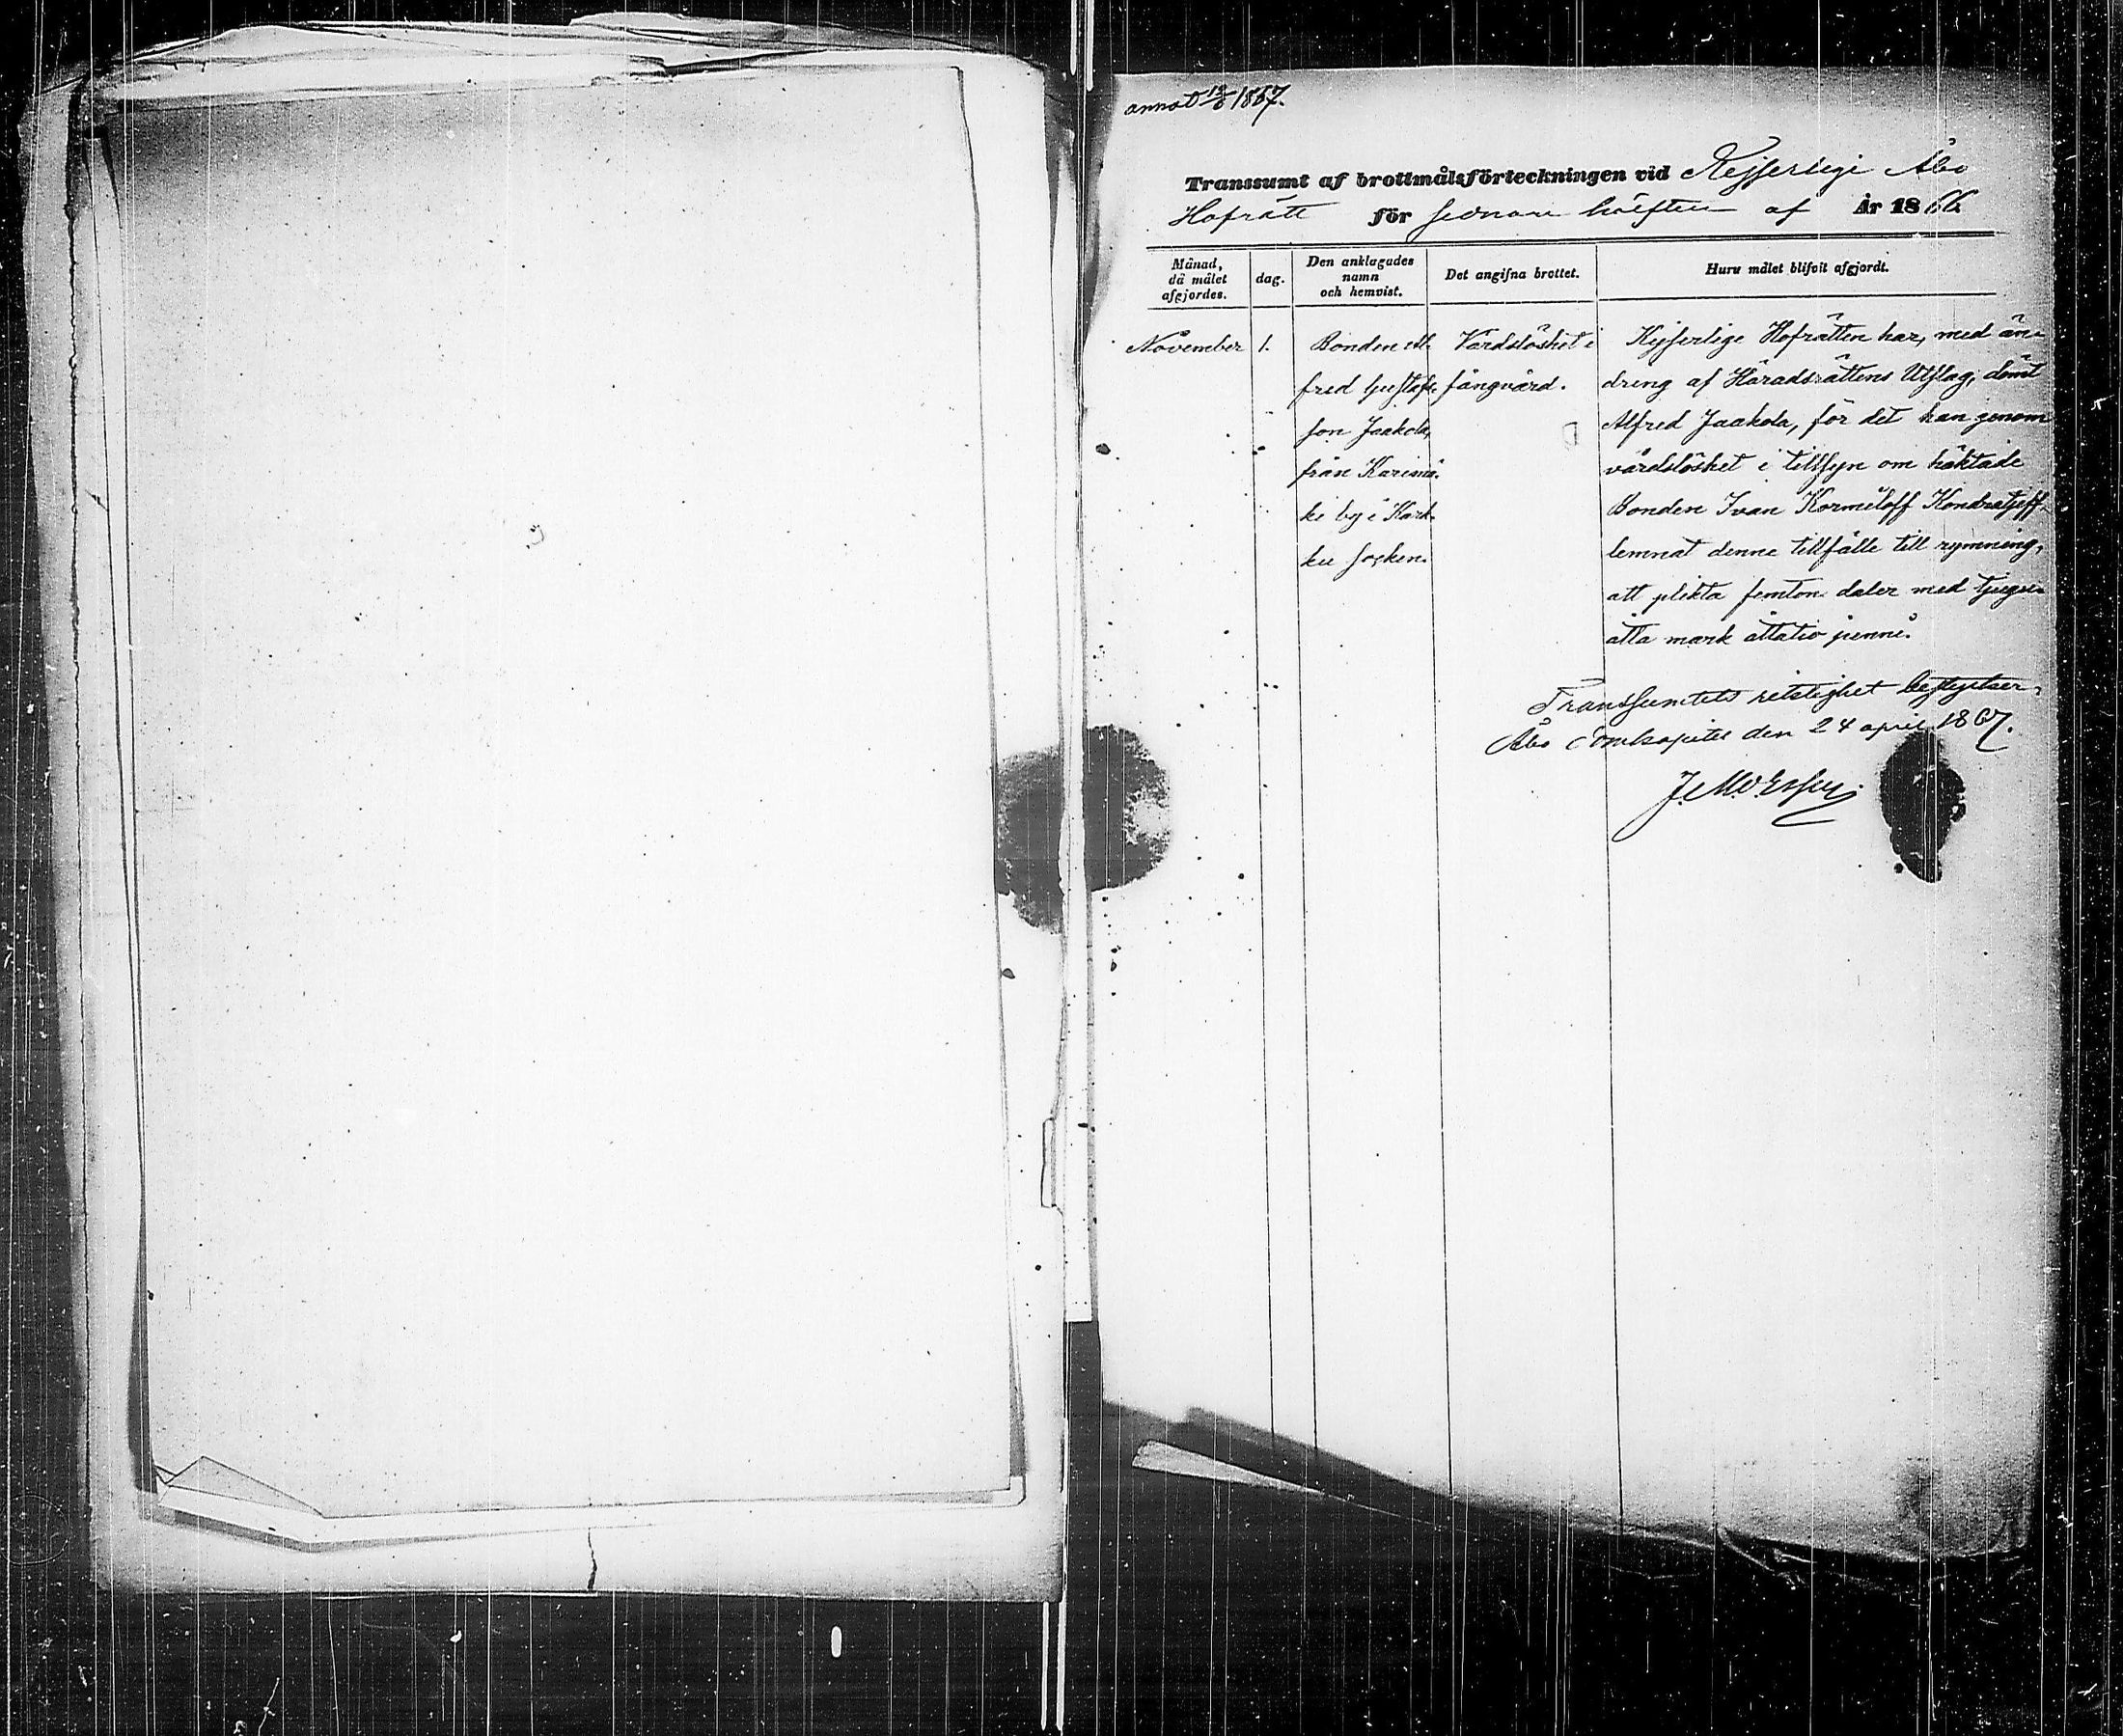 annot 18/6 1867.
Transsumt af brottmålsförteckningen vid Kejserlige Åbo
Hofrätt för sednare hälften af År 1866
Månad, då målet afgjordes.
dag.
Den anklagades namn och hemvist.
Det angifna brottet.
Huru målet blifvit afgjordt.
November 1. Bonden Al- Vårdslöshet i Kejserlige Hofrätten har, med än-
fred Gustafs- fångvård. dring af Häradsrättens Utslag, dömt
son Jaakola, Alfred Jaakola, för det han genom
från Karimä- vårdslöshet i tillsyn om häktade
ki by i Kark- Bonden Ivan Kormeloff Kondratjeff
ku socken. lemnat denne tillfälle till rymning,
att plikta femton daler med tjugu-
åtta mark åttatio penni.
Transsumtets riktighet bestyrker,
Åbo Domkapitel den 24 april 1867.